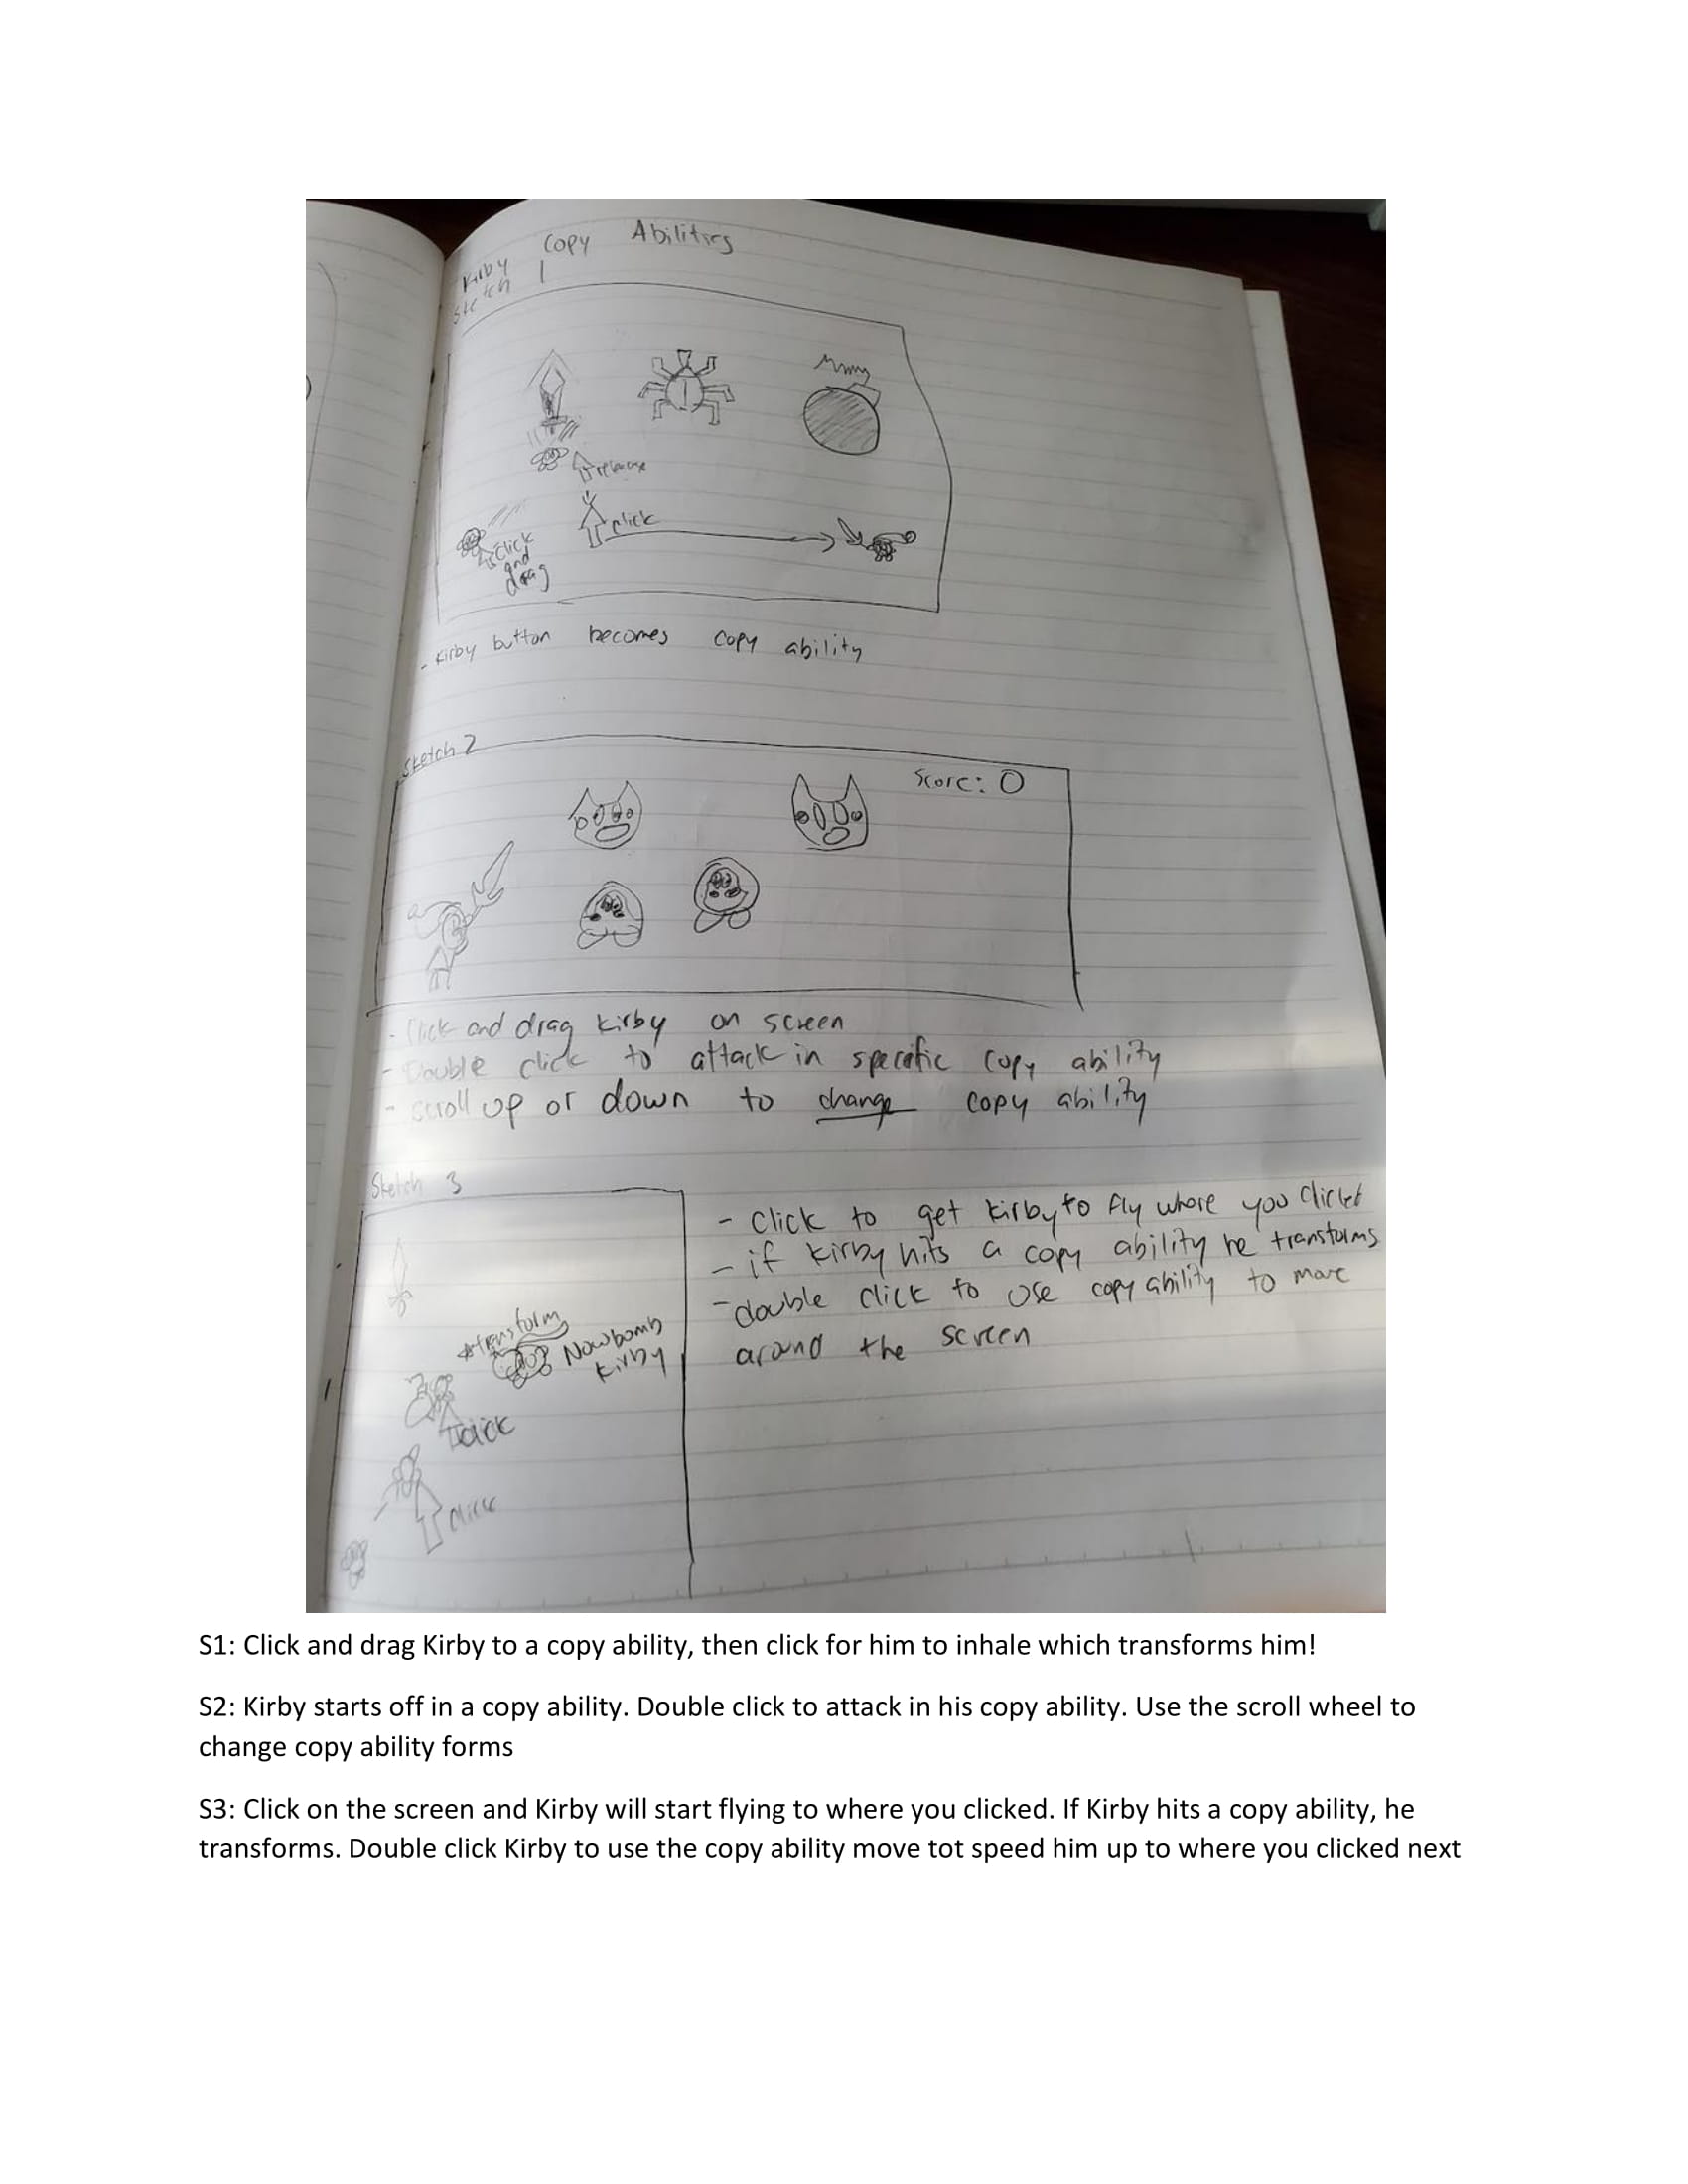 Kirby Copy Abilities
Sketch 1
release
click
Click
and
drag
- Kirby button becomes copy ability
Sketch 2
Score: 0
- Click and drag Kirby on screen
- Double click to attack in specific copy ability
- scroll up or down to change copy ability
Sketch 3
- Click to get Kirby to fly where you clicked
- if Kirby hits a copy ability he transforms
- double click to use copy ability to move
around the screen
*transform
Now bomb
Kirby
click
click
S1: Click and drag Kirby to a copy ability, then click for him to inhale which transforms him!
S2: Kirby starts off in a copy ability. Double click to attack in his copy ability. Use the scroll wheel to
change copy ability forms
S3: Click on the screen and Kirby will start flying to where you clicked. If Kirby hits a copy ability, he
transforms. Double click Kirby to use the copy ability move tot speed him up to where you clicked next